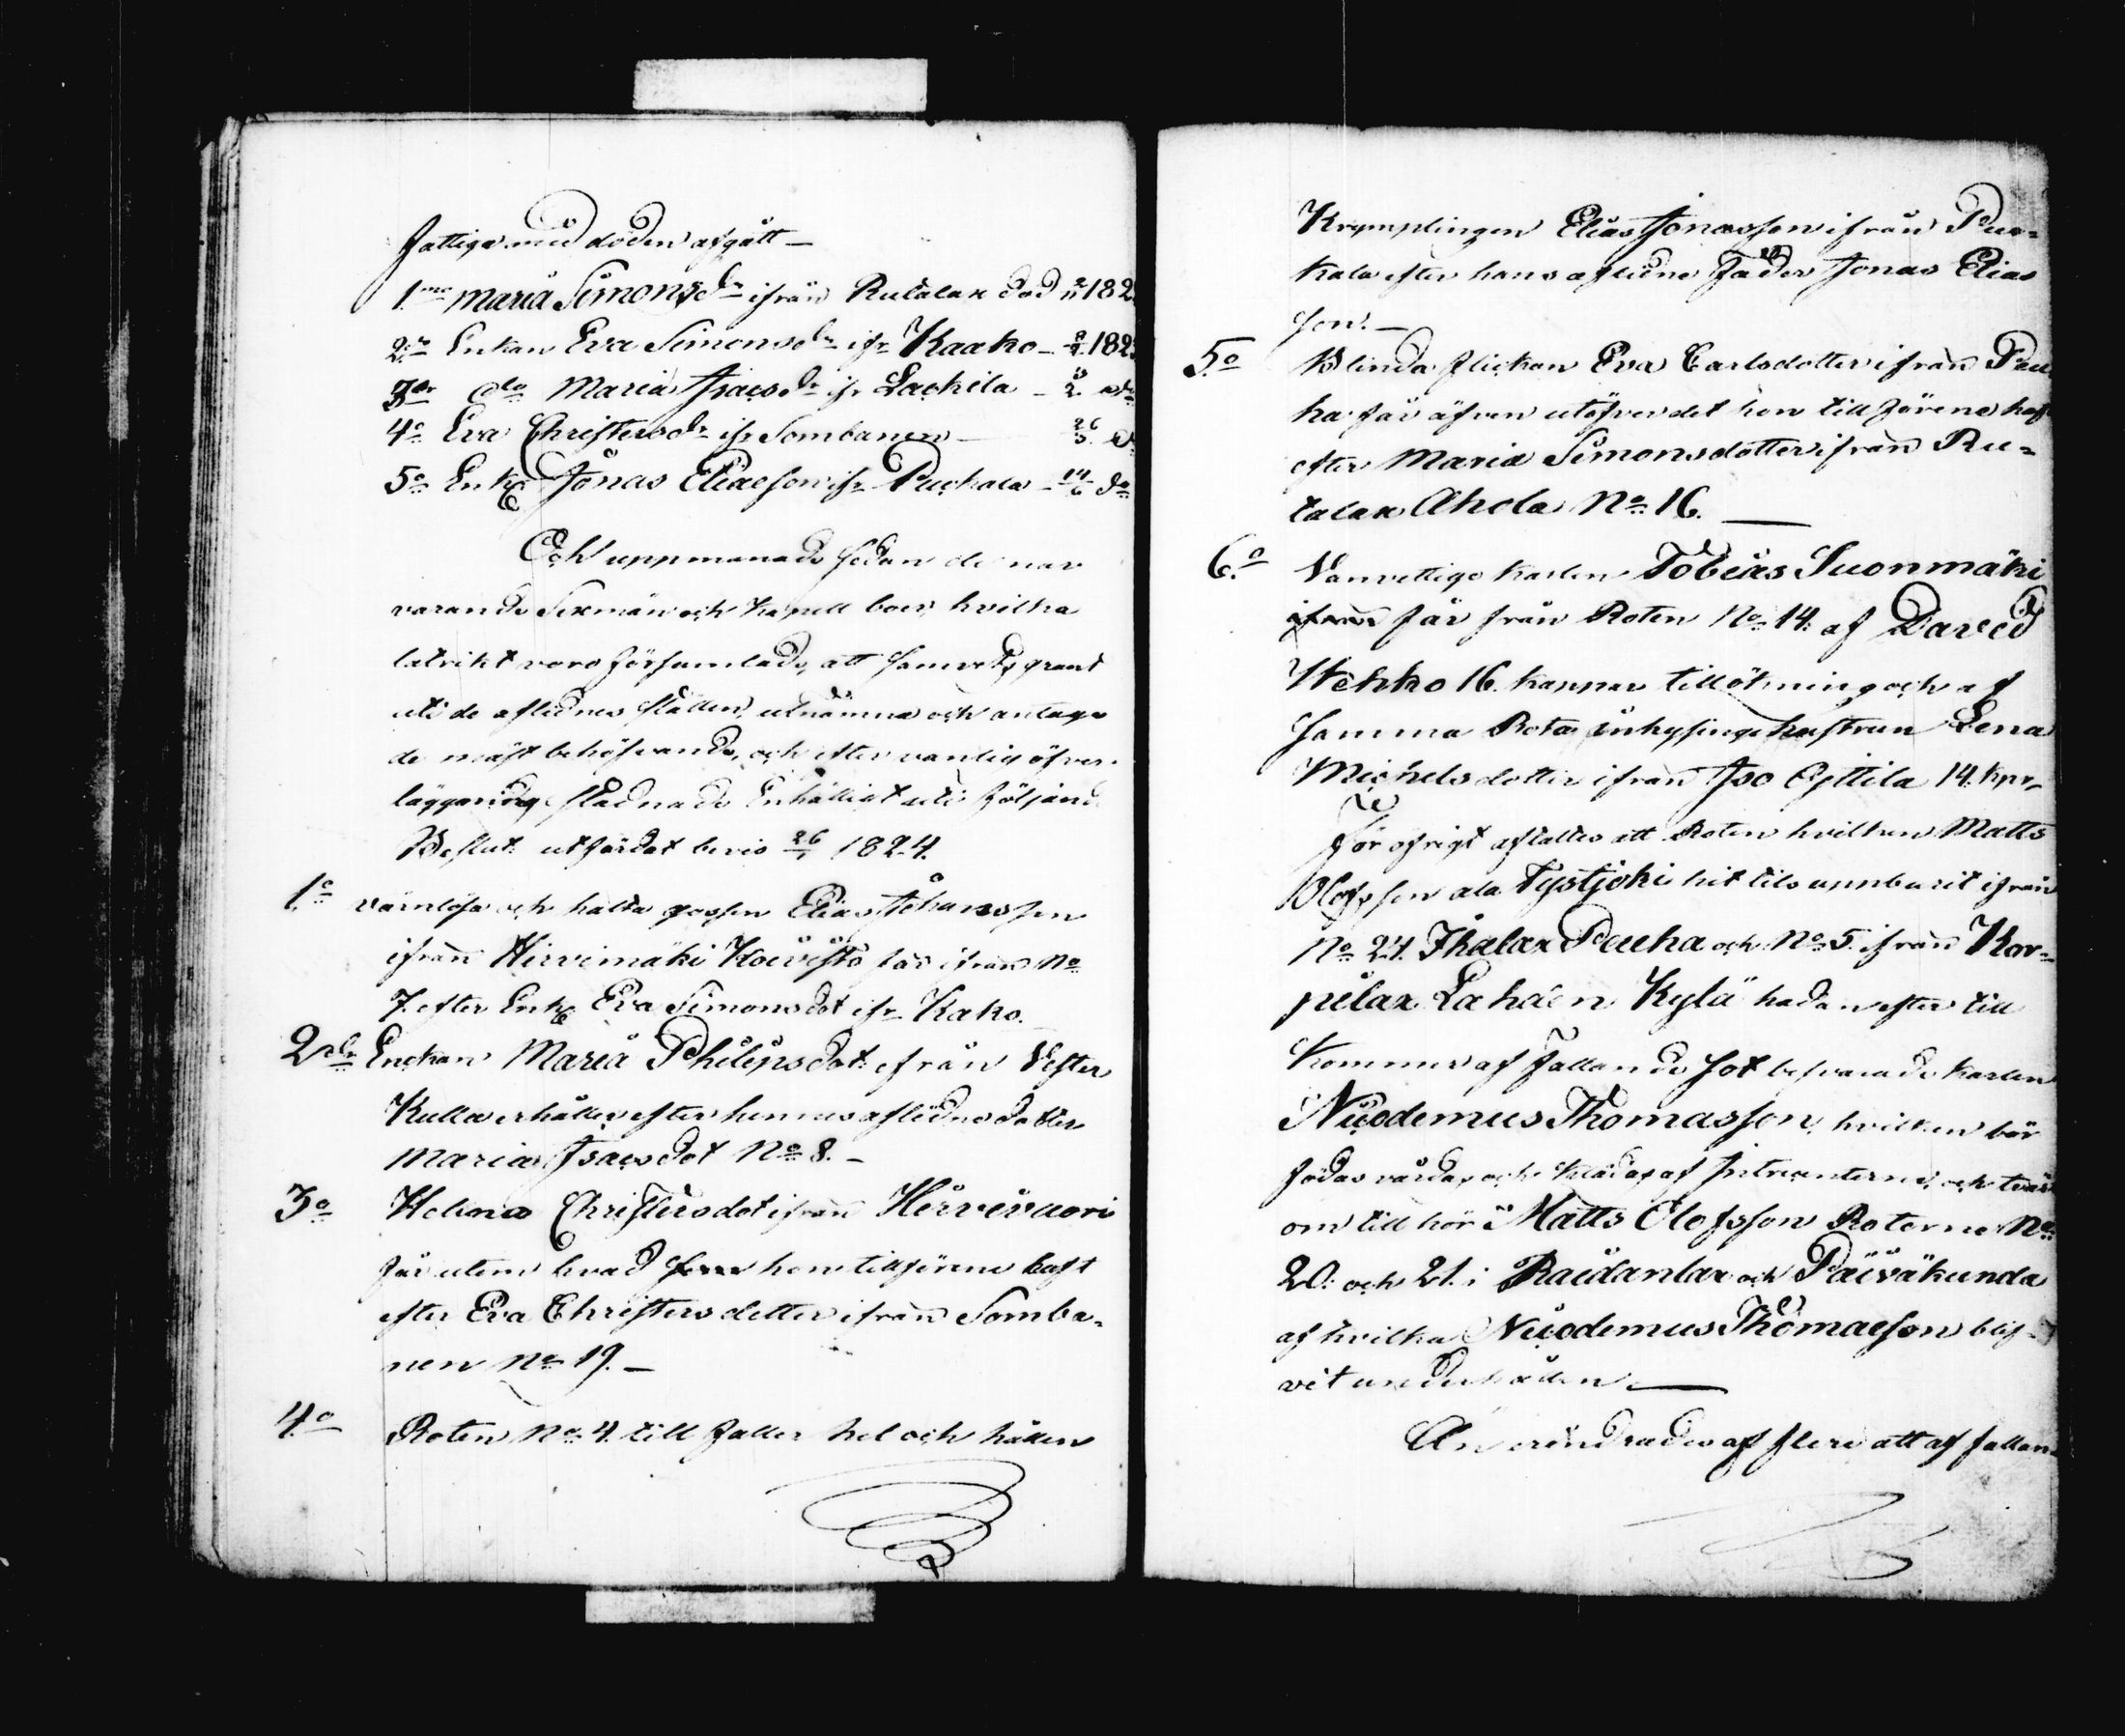 fattige med döden afgått —
1.mo Maria Simonsdr ifrån Rutalax död 2/11 182
2.o Enkan Eva Simonsdr ifr Kaako — 182
3.o do Maria Isacsdr ifr Lackila — do
4.o Eva Christersdr ifr Sombanen — 26/3 do
5.o Enkl Jonas Eliaeson ifr Puckala — 14/6 do
Och uppmanade sedan de när
varande Sexmän och Kapell boer, hvilka
talrikt voro församlade, att samvetsgrant
uti de aflidnes ställen, utnämna och antaga
de mäst behöfvande, och efter vanlig öfver-
läggning stadnade Enhälligt uti följande
Beslut: utfärdat bevis 26 1824.
1.o värnlösa och halta gossen Elias Johansson
ifrån Hirvimäki Koivisto får ifrån No
7. efter Enk Eva Simonsdot ifr Kako.
2.do Enckan Maria Philipsdot: ifrån Vester
Kulla erhåller efter hennes aflidne dotter
Maria Isacsdot No 8. —
3.o Helena Christersdot ifrån Hirvivuori
får utom hvad hon tillförene haft
efter Eva Christersdotter ifrån Somba-
nen No 19. —
4.o Roten No 4. till faller hel och hållen
Krymplingen Elias Jonasson ifrån Puc-
kala efter hans aflidne Fader Jonas Elias
son. —
5.o Blinda flickan Eva Carlsdotter ifrån Pau
ha får äfven utöfver det hon till förene haft
efter Maria Simonsdotter ifrån Ru-
talax Ahola No 16. —
6.o Vanvettige karlen Tobias Suonmäki
ifrån får från Roten No 14. af David
Wehko 16. kappar tillökning och af
samma Rota inhysinge hustrun Lena
Michelsdotter ifrån Iso Cyttila 14. kpr,
För öfrigt aftaltes att Roten hvilken Matts
Olofsson ala Tystjoki hit tils uppburit ifrån
No 24. Ihalax Pauha och No 5. ifrån Kor-
pilax Lahden Kylä hädanefter till
kommer af fallande sot besvärade karlen
Nicodemus Thomasson, hvilken bör
födas vårdas och klädas af Intressenterne, och tvärt
om till hör Matts Olofsson Roterne No
20. och 21. i Raidanlax och Päiväkunda
af hvilka Nicodemus Thomaeson blif-
vit underhållen —
Än erindrades af flere att af fallan